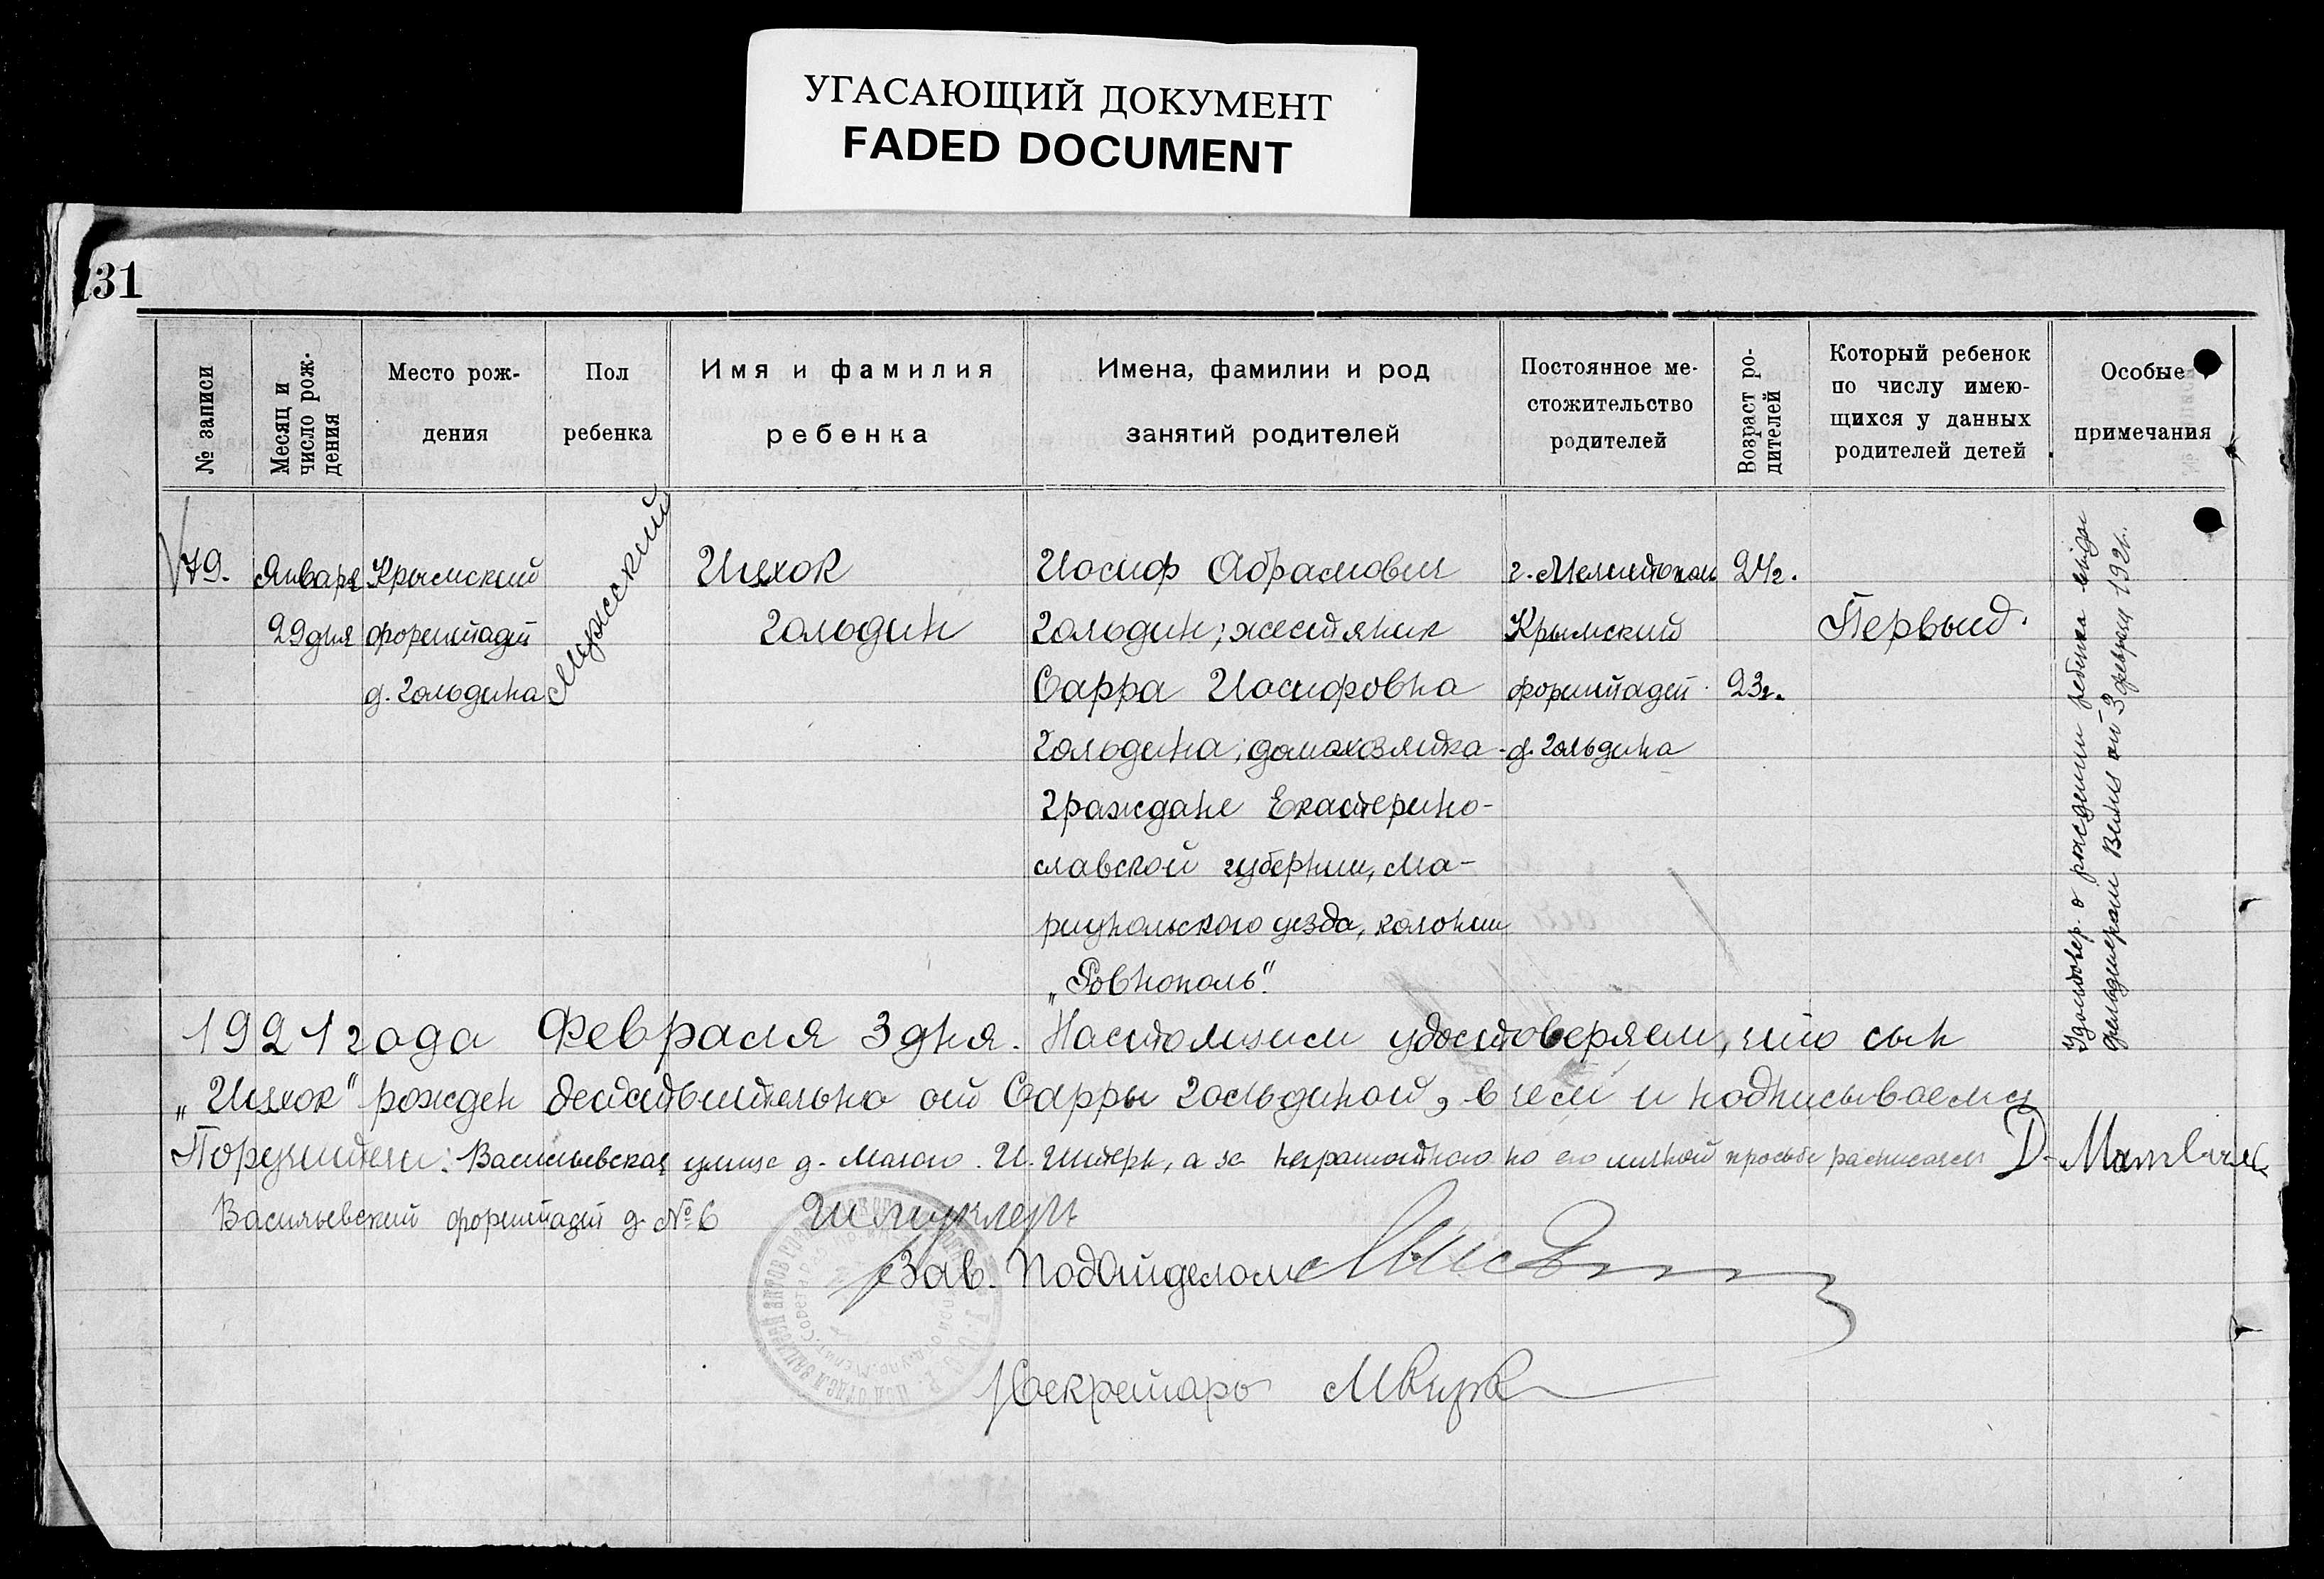 УГАСАЮЩИЙ ДОКУМЕНТ
FADED DOCUMENT
31
№ записи
Месяц и число рож-
дения
Место рож-
дения
Пол
ребенка
Имя и фамилия
ребенка
Имена, фамилии и род
занятий родителей
Постоянное ме-
стожительство
родителей
Возраст ро-
дителей
Который ребенок
по числу имею-
щихся у данных
родителей детей
Особые
примечания
79.
Января
29 дня
Крымский
форштадт
д. Гольдина
Мужской
Ицхок
Гольдин
Иосиф Абрамович
Гольдин; жестяник
Сарра Иосифовна
Гольдина; домохозяйка
Граждане Екатерино-
славской губернии, Ма-
риупольского уезда, колонии
„Ровнополь“.
г. Мелитополь
Крымский
форштадт
д. Гольдина
24 г.
23 г.
Первый.
Удостовер. о рождении ребенка выдан
от 3 февраля 1921.
1921 года Февраля 3 дня. Настоящим удостоверяем, что сын
„Ицхок“ рожден действительно от Сарры Гольдиной, в чем и подписываемся
Поручители: Васильевская улица д. Малого. И. Штерн, а за неграмотного по его личной просьбе расписался Д.
Васильевский форштадт д. № 6
Зав. Подотделом
Секретарь